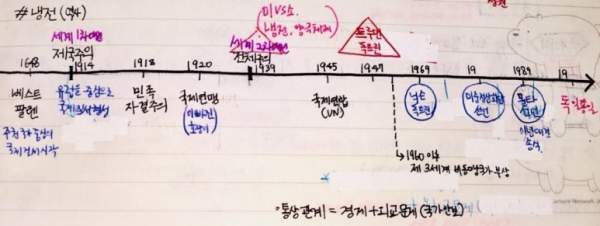 # 냉전 (역사)
미 vs 소.
냉전, 양극체제
냉전
세계 1차대전
제국주의
세계 2차대전
전체주의
트루먼
독트린
1648
1914
1918
1920
1939
1945
1947
1969
19
1989
19
독일통일
베스트
팔렌
주권국가 중심의
국제질서 시작
유럽을 중심으로
민족
자결주의
국제연맹
국제연합
(UN)
닉슨
독트린
선언
몰타
회담
이념대결
종식
→ 1960 이후
제 3세계 비동맹국가 부상
* 통상관계 = 경제 + 외교문제 (국가안보)